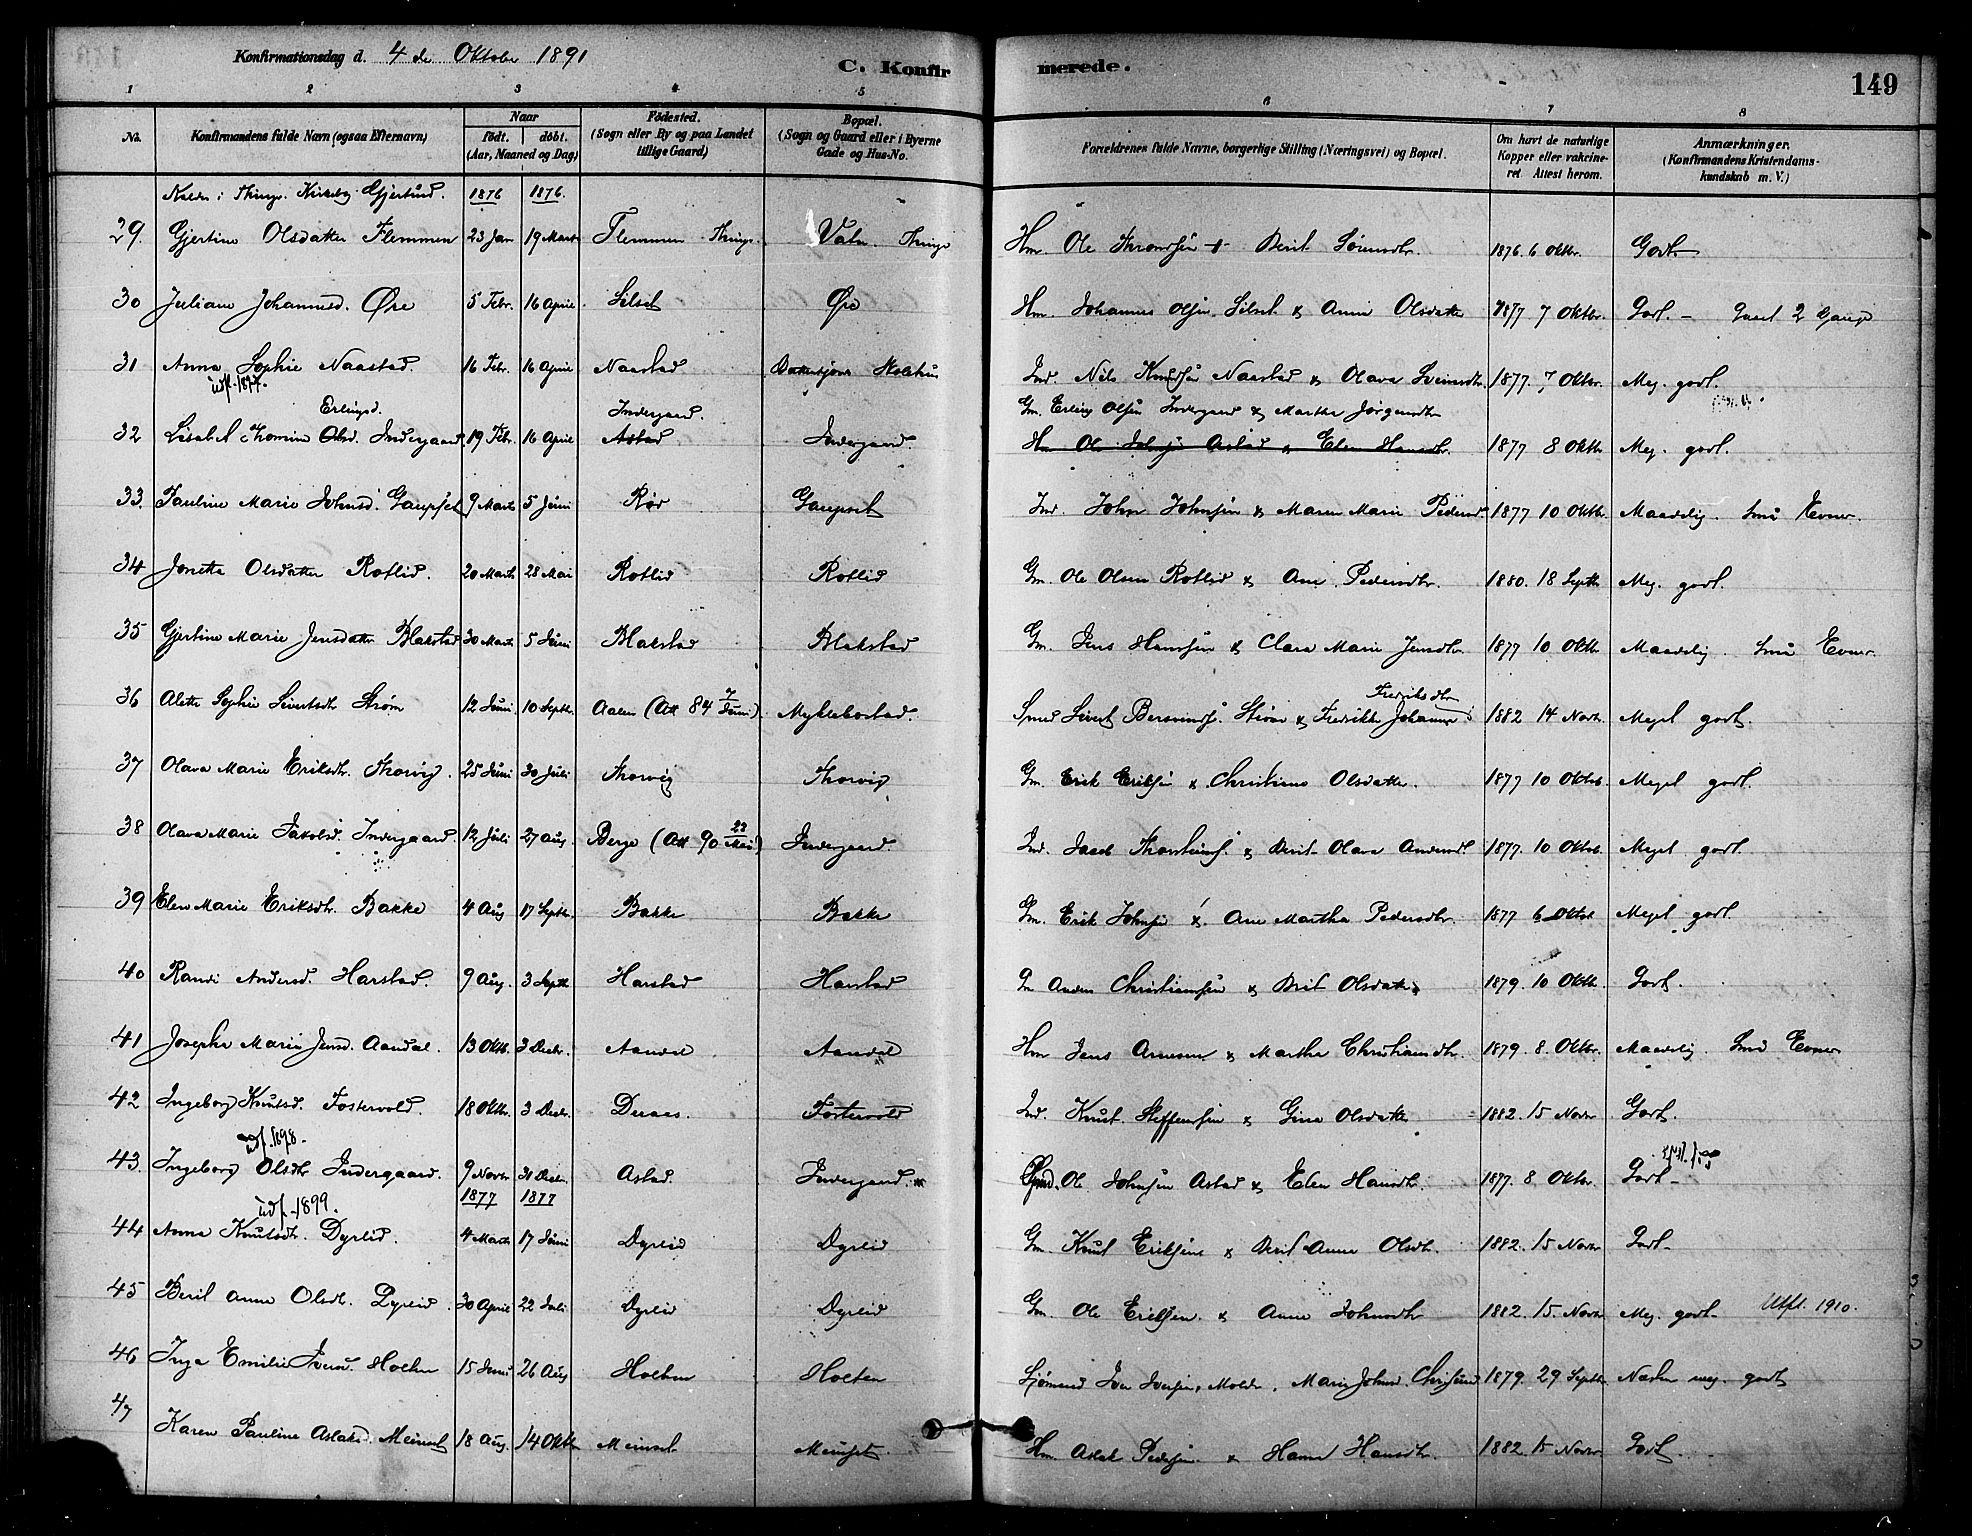 Konfirmationsdag d. 4 de Oktober 1891
C. Konfir merede.
149
1 2 3 4 5 6 7 8
No. Konfirmandens fulde Navn (ogsaa Efternavn) Naar født. døbt. (Aar, Maaned og Dag) Fødested. (Sogn eller By og paa Landet tillige Gaard) Bopæl. (Sogn og Gaard eller i Byerne Gade og Hus-No. Forældrenes fulde Navne, borgerlige Stilling (Næringsvei) og Bopæl. Om havt de naturlige Kopper eller vakcineret. Attest herom. Anmærkninger. (Konfirmandens Kristendomskundskab m. V.)
i Kirkebog Gjertrud. 1876 1876.
29. Gjertine Olsdatter Flemmen 23 Jan 19 Marts Flemmen Things. Vatn. Things Hm. Ole Throndsen + Berit 1876. 6 Oktbr. Godt
30 Juliane Johannesd. Øre 5 Febr. 16 April Silset Øre Hm. Johannes Olsen Silset & Anne Olsdatter 1877 7 Oktbr. Godt. - 2 Gange
31 Anna Sophie Naastad 16 Febr. 16 April Naastad Ind. Nils Knudsen Naastad & Olava 1877. 7 Oktbr. Meg. godt.
udf. 1877.
Erlingsd. Indergaard. Gm. Erling Olsen Indergaard & Marthe Jørgensdtr
32 Lisabet Thomine Olsd. Indergaard 19 Febr. 16 April Astad Indergaard. Hm Ole Johnsen Astad & Elen Hansdtr. 1877 8 Oktbr Meg. godt.
33. Pauline Marie Johnsd. Gaupset 9 Marts 5 Juni Rør Gaupset Ind. John Johnsen & Maren Marie Pedersd. 1877 10 Oktbr. Maadelig. Små Evner.
34 Jonetta Olsdatter Rotlid. 20 Marts 28 Mai Rotlid Rotlid Gm. Ole Olsen Rotlid & Ane Pedersdtr. 1880. 18 Septbr Meg. godt.
35 Gjertine Marie Jensdatter Blakstad 30 Marts 5 Juni Blakstad Blakstad Gm. Jens Hansen & Clara Marie Jensdtr. 1877 10 Oktbr Maadelig. Små Evner.
Fredriksdtr
36 Alette Sophie Sivertsdtr Strøm 12 Juni 10 Septbr. Aalen (Att 84 7/Juni) Myklebostad. Smed Sivert Strøm & Fredrikke Johanne 1882 14 Novbr. Meget godt.
37 Olava Marie Eriksdtr. Thorvig. 25 Juni 30 Juli Thorvig Thorvig Gm. Erik Eriksen & Christiane Olsdatter. 1877 10 Oktbr. Meget godt.
38 Olava Marie Jakobsd. Indergaard. 12 Juli 27 Aug. Berge (Att 90 22/Mai) Indergaard. Ind. Jacob & Berit Olava Andersd. 1877. 10 Oktbr. Meget godt.
39 Elen Marie Eriksdtr. Bakke 4 Aug 17 Septbr. Bakke Bakke Gm. Erik Johnsen & Ane Martha Pedersdtr. 1877 6 Oktbr Meget godt.
40 Randi Andersd. Harstad. 9 Aug. 3 Septbr Harstad Harstad Gm Anders Christiansen & Brit Olsdatter 1879. 10 Oktbr. Godt.
41 Josepha Marie Jensd. Aandal. 13 Oktbr. 3 Decbr. Aandal Aandal Hm Jens Arnesen & Marthe Christiansdtr. 1879. 8. Oktbr. Maadelig. Små Evner
42 Ingeborg Knutsd. Fostervold. 18 Oktbr. 3 Decbr. Deraas. Fostervold Ind. Knut Steffensen & Gina Olsdatter 1882. 15 Novbr Godt.
udf. 1898.
43. Ingeborg Olsdtr Indergaard. 9 Novbr 31 Decbr. Astad. Indergaard Ole Johnsen Astad & Elen Hansdtr. 1877. 8 Oktbr. Godt
1877 1877
udf. 1899.
44 Anna Knutsdtr. Dyrlid. 4 Marts 17 Juni Dyrlid Dyrlid Gm. Knut Eriksen & Berit Anne Olsdtr. 1882. 15 Novbr Godt.
45 Berit Anne Olsdtr. Dyrlid. 30 April 22 Juli Dyrlid Dyrlid Gm. Ole Eriksen & Anne Johnsdtr 1882. 15. Novbr Meg. godt. Utfl. 1910.
46 Inga Emilie Iversd. Holten 15 Juni 26 Aug Holten Holten Sjømand Iver Iversen, Molde. Marie Johnsd. 1879. 29 Septbr. Næsten meg. godt
47 Karen Pauline Aslaksd. Meinset 18 Aug. 14 Oktbr Meinset Meinset Hm. Aslak Pedersen & Hanna Hansdtr. 1882. 15 Novbr Godt.